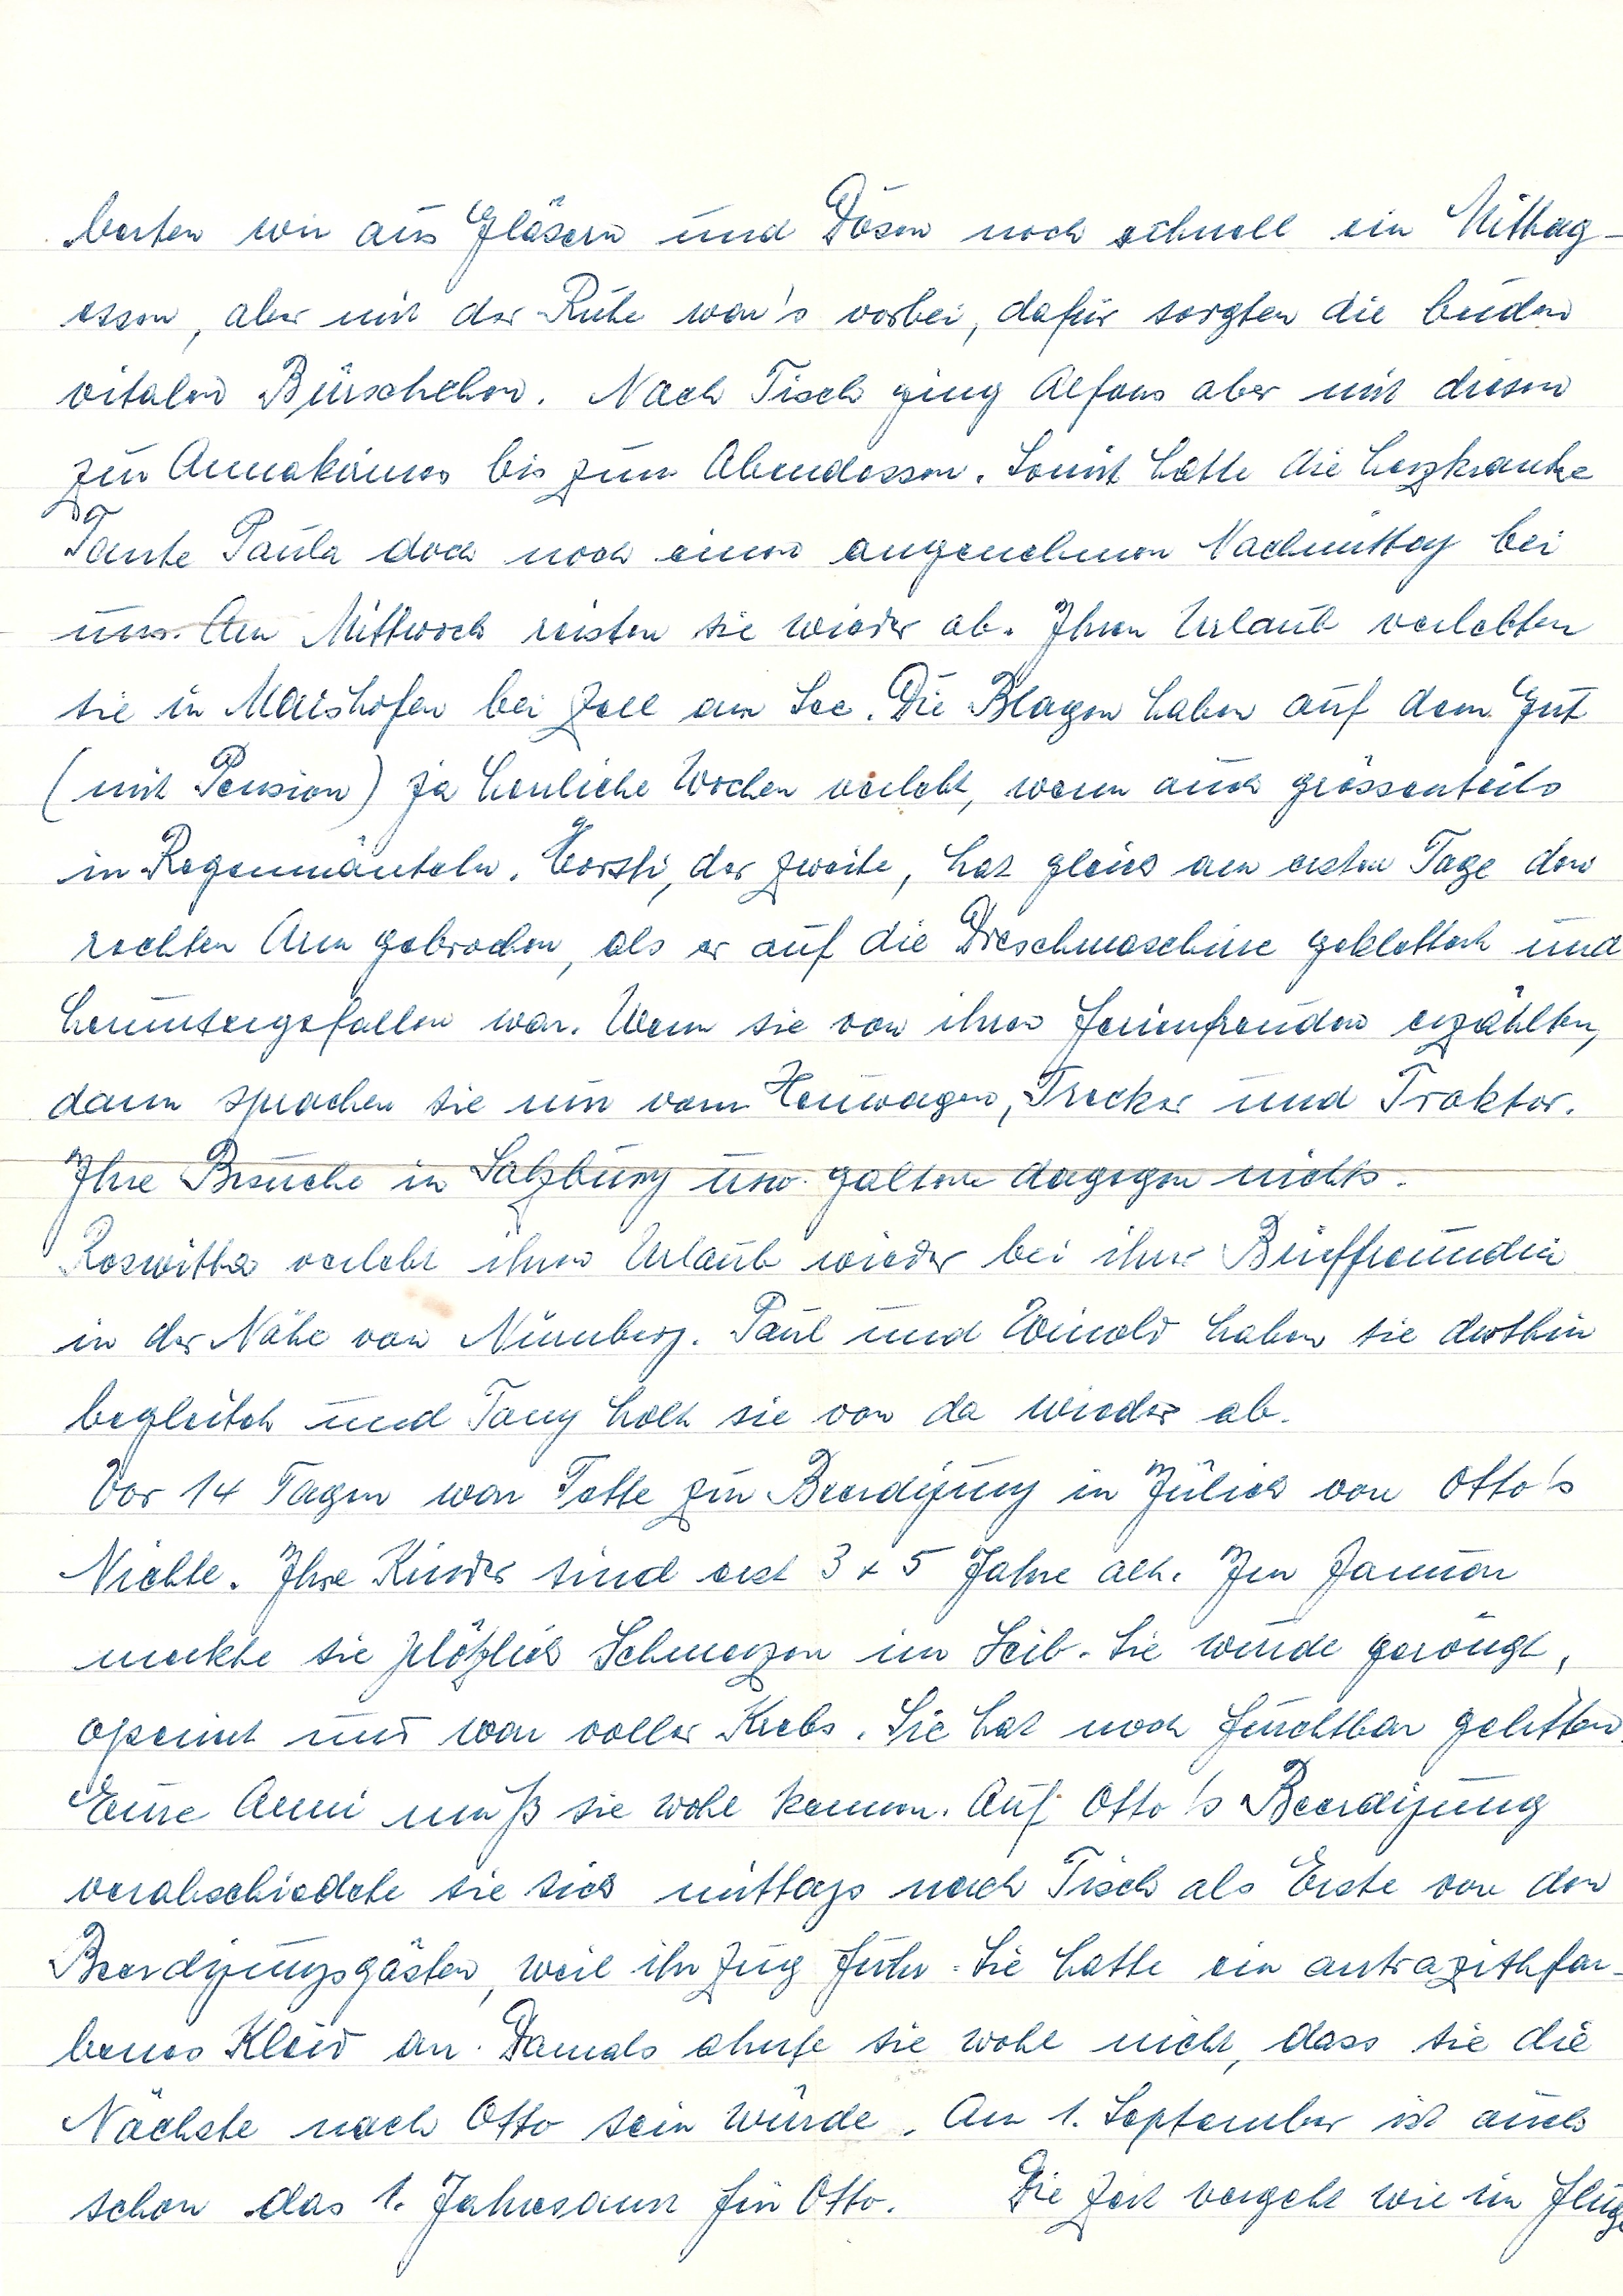 berten wir aus Gläsern und Dosen noch schnell ein Mittag-
essen, aber mit der Ruhe war's vorbei, dafür sorgten die beiden
vitalen Bürschchen. Nach Tisch ging Alfons aber mit diesen
zur Annakirmes bis zum Abendessen. Somit hatte die herzkranke
Tante Paula doch noch einen angenehmen Nachmittag bei
uns. Am Mittwoch reisten sie wieder ab. Ihren Urlaub verlebten
sie in Maishofen bei Zell am See. Die Blagen haben auf dem Gut
(mit Pension) ja herrliche Wochen verlebt, wenn auch grössenteils
in Regenmänteln. Horsti, der zweite, hat gleich am ersten Tage den
rechten Arm gebrochen, als er auf die Dreschmaschine geklettert und
heruntergefallen war. Wenn sie von ihren Ferienfreuden erzählten,
dann sprachen sie nur vom Heuwagen, Trecker und Traktor.
Ihre Besuche in Salzburg usw. galten dagegen nichts.
Roswitha verlebt ihren Urlaub wieder bei ihrer Brieffreundin
in der Nähe von Nürnberg. Paul und haben sie dorthin
begleitet und Tony holt sie von da wieder ab.
Vor 14 Tagen war Tette zur Beerdigung in Jülich von Otto's
Nichte. Ihre Kinder sind erst 3 + 5 Jahre alt. Im Januar
merkte sie plötzlich Schmerzen im Leib. Sie wurde geröngt,
operiert und war voller Krebs. Sie hat noch furchtbar gelitten.
Eure Anni muß sie wohl kennen. Auf Otto's Beerdigung
verabschiedete sie sich mittags nach Tisch als Erste von den
Beerdigungsgästen, weil ihr Zug fuhr. Sie hatte ein antrazithfar-
benes Kleid an. Damals ahnte sie wohl nicht, dass sie die
Nächste nach Otto sein würde. Am 1. September ist auch
schon das 1. Jahresamt für Otto. Die Zeit vergeht wie im Fluge